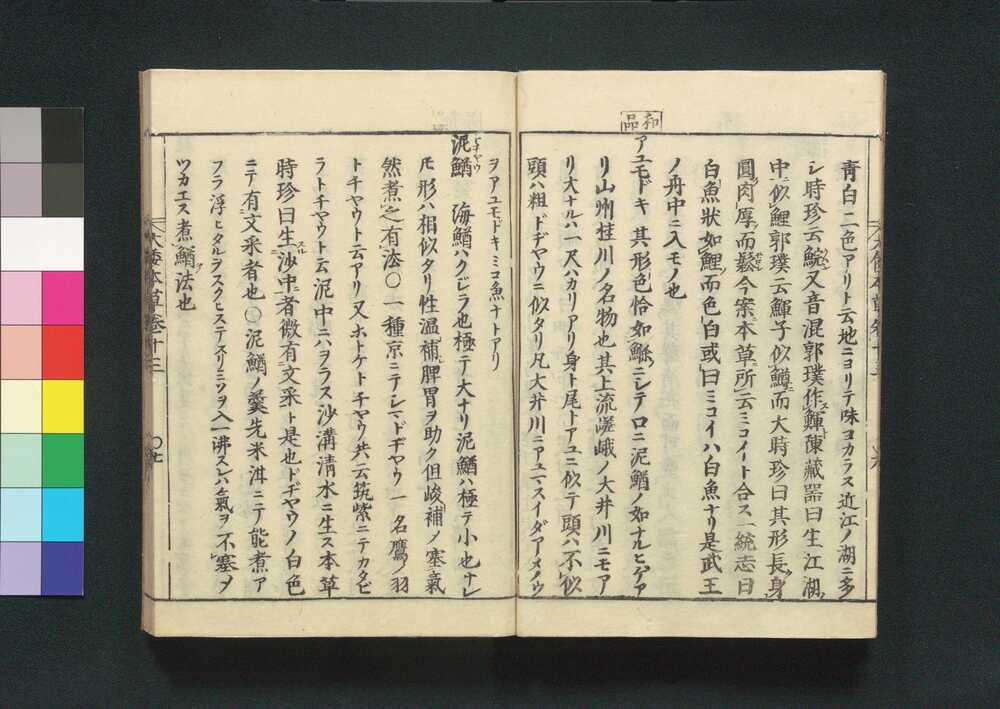 青白二色アリト云地ニヨリテ味ヨカラス近江ノ湖ニ多
シ時珍云鯇又音混郭璞作鰀陳藏器曰生江湖
中似鯉郭璞云鯶子似鱒而大時珍曰其形長身
圓肉厚而鬆今案本草所云ミコイト合ス一統志曰
白魚狀如鯉而色白或曰ミコイハ白魚ナリ是武王
ノ舟中ニ入モノ也
和品
アユモドキ 其形色恰如鮧ニシテ口ニ泥鰌ノ如ナルヒゲア
リ山州桂川ノ名物也其上流嵯峨ノ大井川ニモア
リ大ナルハ一尺ハカリアリ身ト尾トアユニ似テ頭ハ不似
頭ハ粗ドヂヤウニ似タリ凡大井川ニアユマスイダアメノウ
ヲアユモドキミコ魚ナトアリ
泥鰌 海鰌ハクジラ也極テ大ナリ泥鰌ハ極テ小也ナレ
𪜈形ハ相似タリ性温補脾胃ヲ助ク但峻補ノ塞氣
然煮之有法〇一種京ニテシマドヂヤウ一名鷹ノ羽
トチヤウト云アリ又ホトケトチヤウ共云筑紫ニテカタビ
ラトチヤウト云泥中ニハヲラス沙溝清水ニ生ス本草
時珍曰生沙中者微有文采ト是也ドヂヤウノ白色
ニテ有文采者也〇泥鰌ノ羹先米泔ニテ能煮ア
フラ浮ヒタルヲスクヒステスリミソヲ入一沸スレハ氣ヲ不塞ヲ
ツカエス煮鰌法也
大倭本草卷十三
〇七